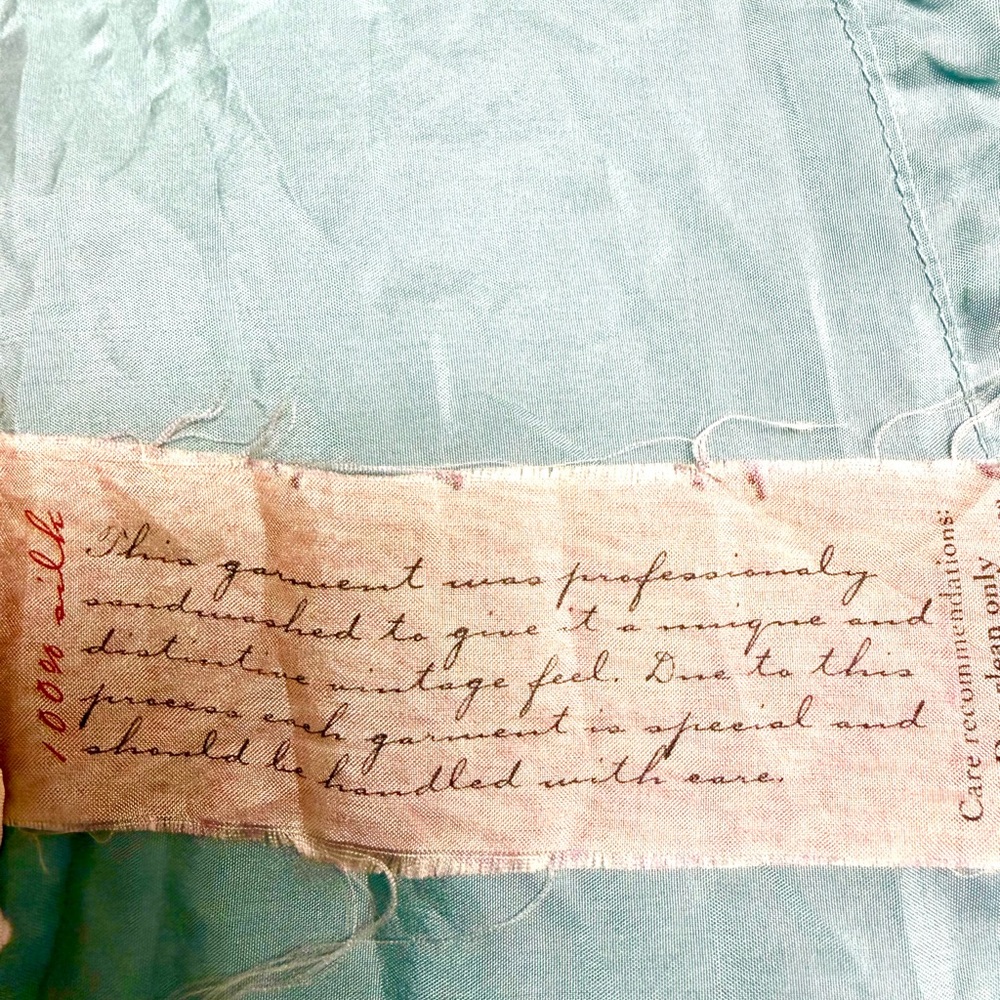 100% silk
This garment was professionaly
sandwashed to give it a unique and
distintive vintage feel. Due to this
process each garment is special and
should be handled with care.
Care recommendations:
clean only